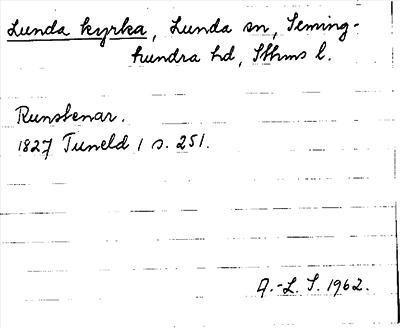 Lunda kyrka, Lunda sn, Seming-
hundra hd, Sthms l.
Runstenar.
1827 Tuneld 1 s. 251.
A.-L. S. 1962.